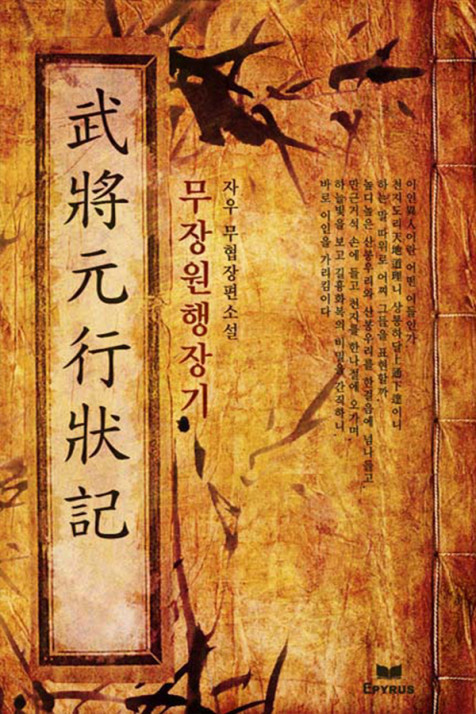 武將元行狀記
무장원행장기
자우 무협장편소설
이인異人이란 어떤 이들인가
천지도리天地道理니 상통하달上通下達이니
하는 말 따위로 어찌 그들을 표현할까.
높디높은 산봉우리와 산봉우리를 한걸음에 넘나들고
만근거석 손에 들고 천지를 한나절에 오가며,
하늘빛을 보고 길흉화복의 비밀을 간직하니.
바로 이인을 가리킴이다
EPYRUS